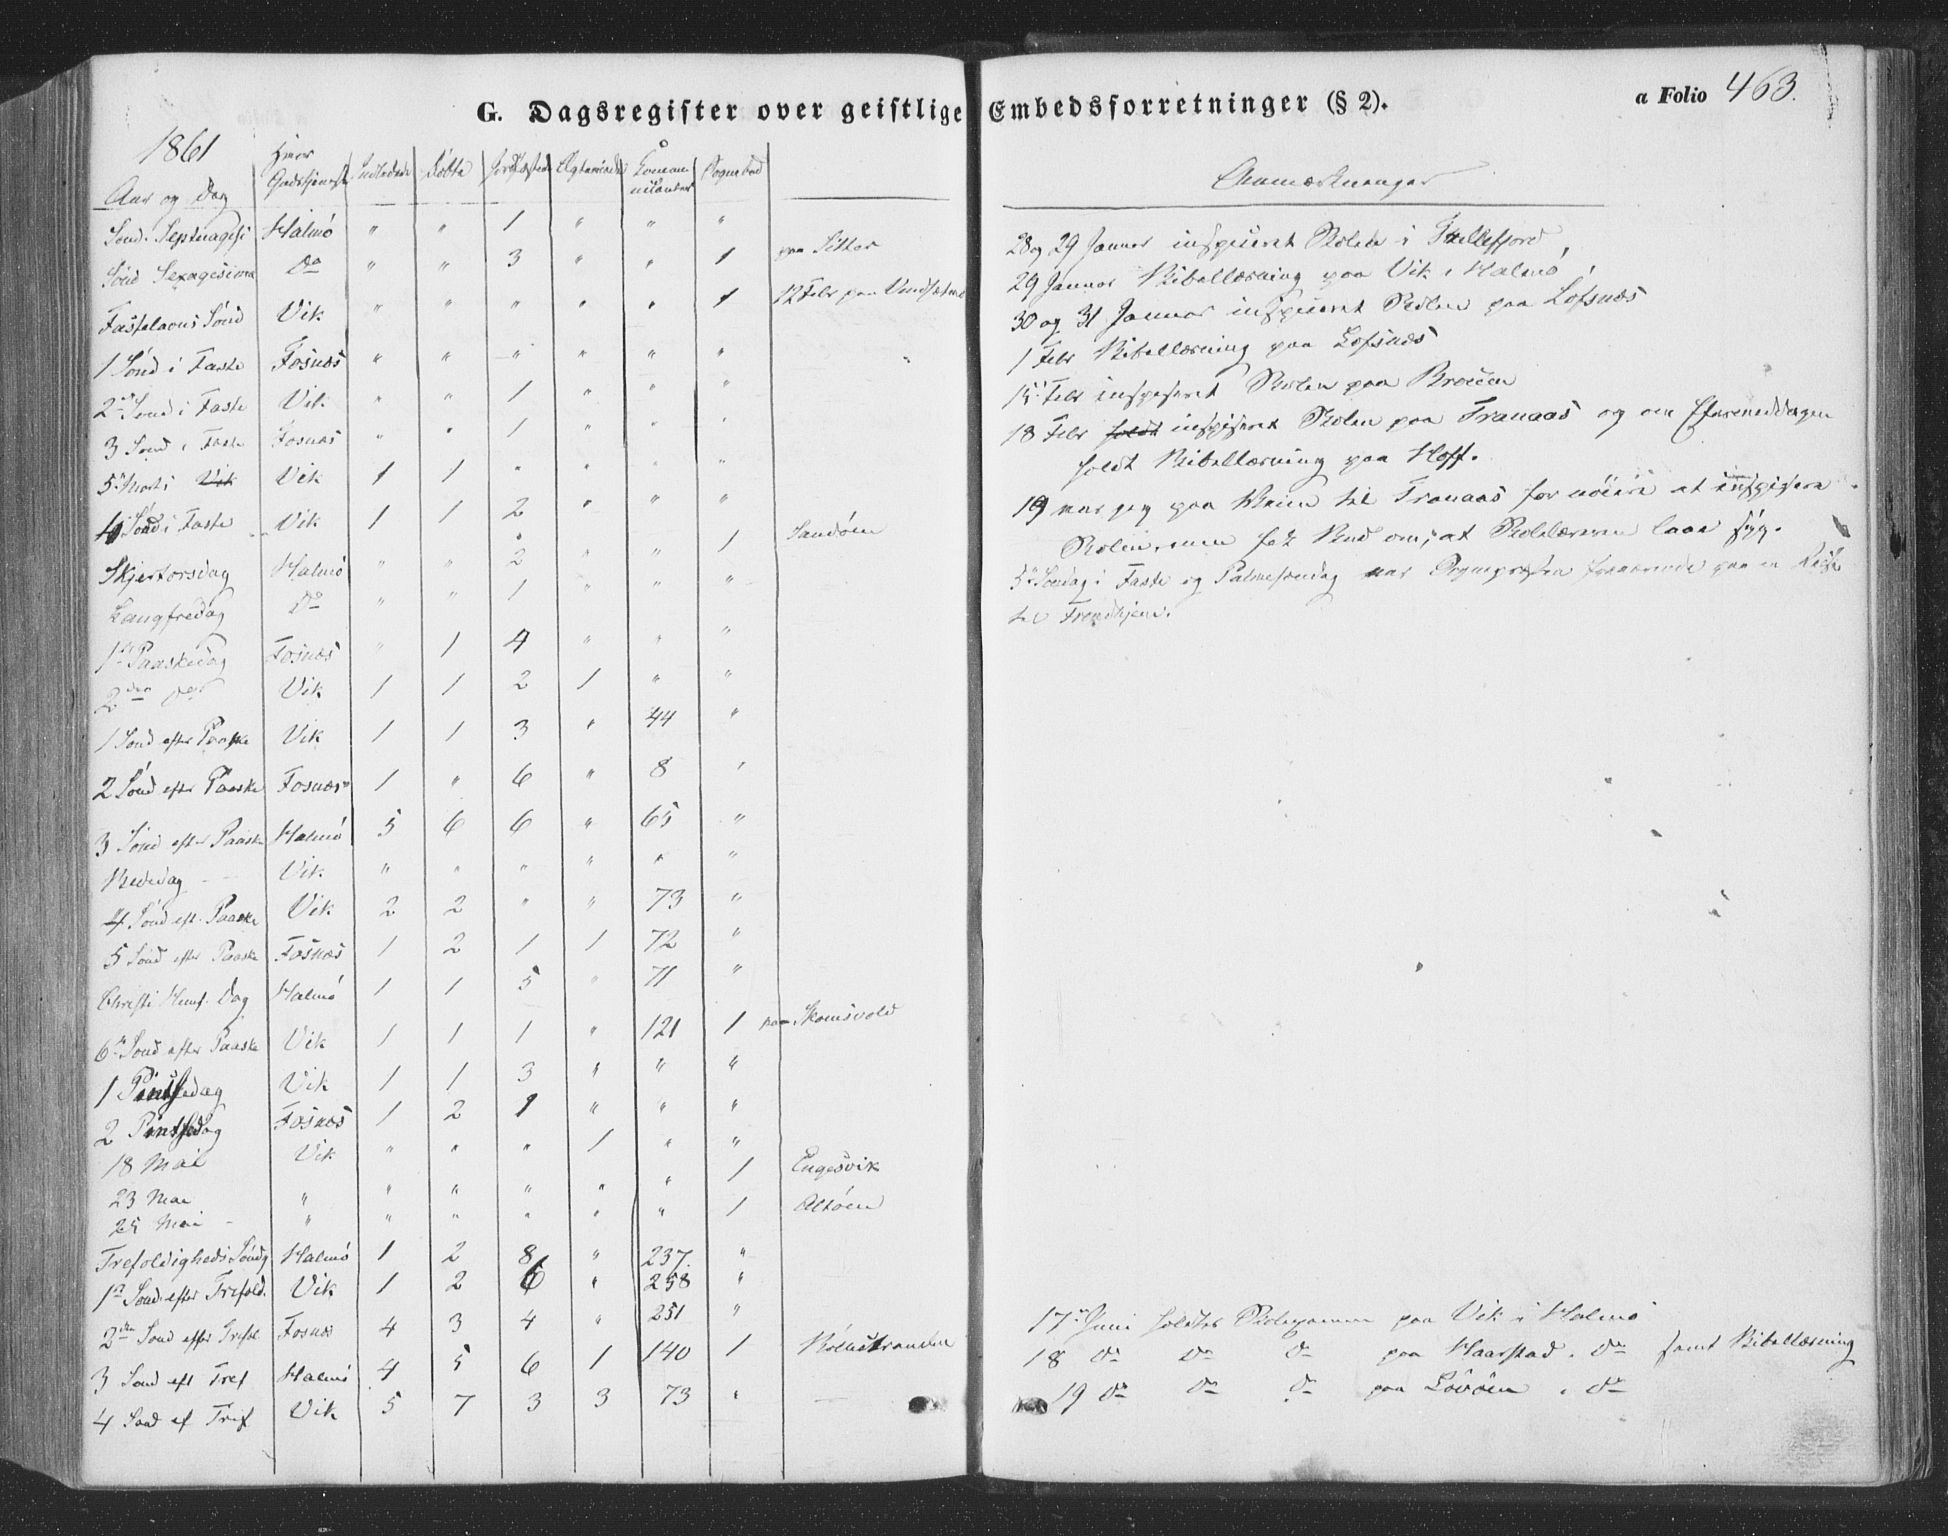 G. Dagsregister over geistlige Embedsforretninger (§ 2).
a Folio 463.
1861
Aar og Dag | Hvor Gudstjeneste | Indledede | Døbte | Jordfæstede | Ægteviede | Communikanter | Sognebud
Sønd. Septuagesi | Halmø | " | " | 1 | " | " | "
Sønd Sexagesima | Do | " | " | 3 | " | " | 1 | paa Sitter
Fastelavns Sønd | Vik | " | " | " | " | " | 1 | 12 Febr paa
1 Sønd i Faste | Fosnæs | " | " | " | " | " | "
2 Sønd i Faste | Vik | " | " | 1 | " | " | "
3 Sønd i Faste | Fosnæs | " | " | 1 | " | " | "
5 Marts Vik | Vik | 1 | 1 | " | " | " | "
4 Sønd i Faste | Vik | 1 | 1 | 2 | " | " | "
Skjertorsdag | Halmø | " | " | 2 | " | " | 1 | Sandøen
Langfredag | Do | " | " | 1 | " | " | "
1ste Paaskedag | Fosnæs | " | 1 | 4 | " | " | "
2den Do | Vik | 1 | 1 | 2 | 1 | " | "
1 Sønd efter Paaske | Vik | 1 | 1 | 3 | " | 44 | "
2 Sønd efter Paaske | Fosnæs | 1 | " | 6 | " | 8 | "
3 Sønd efter Paaske | Halmø | 5 | 6 | 6 | " | 65 | "
Bededag | Vik | " | " | " | " | " | "
4 Sønd eft. Paaske | Vik | 2 | 2 | " | " | 73 | "
5 Sønd efter Paaske | Fosnæs | 1 | 2 | 1 | 1 | 72 | "
Christi Himf. Dag | Halmø | 1 | 1 | 5 | " | 71 | "
6te Sønd efter Paaske | Vik | 1 | 1 | 1 | " | 121 | 1 | paa Skomsvold
1 Pintsedag | Vik | 1 | 1 | 3 | " | " | "
2 Pintsedag | Fosnæs | 1 | 2 | 1 | " | " | "
18 Mai | Vik | " | " | " | 1 | " | "
23 Mai | " | " | " | " | " | " | 1 | Engesvik
25 Mai | " | " | " | " | " | " | 1 | Altøen
Trefoldigheds Søndg | Halmø | 1 | 2 | 8 | " | 237. | "
1ste Sønd. efter Trefold. | Vik | 1 | 2 | 6 | " | 258 | "
2den Sønd efter Trefol | Fosnæs | 4 | 3 | 4 | " | 251 | "
3 Sønd eft Tref | Halmø | 4 | 5 | 6 | 1 | 140 | 1
4 Sønd ef Tref | Vik | 5 | 7 | 3 | 3 | 73 | "
Anmærkninger
28 og 29 Januar inspiceret Skolen i
29 Januar Bibellæsning paa Vik i Halmø
30 og 31 Januar inspiceret Skolen paa Lofsnæs
1 Febr Bibellæsning paa Lofsnæs
15 Febr inspiceret Skolen paa
18 Febr holdt inspiceret Skolen paa Tranaas og om Eftermiddagen
holdt Bibellæsning paa Hoff.
19 var jeg paa Veien til Tranaas for at inspicere
Skolen, men fik Bud om, at Skolelæreren laae syg.
5te Søndag i Faste og Palmesøndag var Sognepræsten fraværende paa en Reise
til Trondhjem.
17 Juni holdtes Skoleexamen paa Vik i Halmø
18 Do Do Do paa Haarstad. Do samt Bibellæsning
19 Do Do Do paa Lovøen . Do